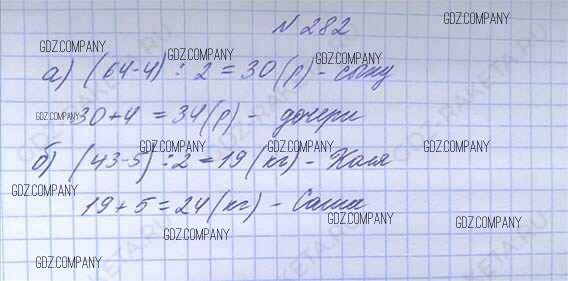 № 282
а) (64-4) : 2 = 30 (р) - сыну
30+4 = 34 (р) - дочери
б) (43-5) : 2 = 19 (кг) - Коля
19 + 5 = 24 (кг) - Саша
GDZ.COMPANY
GDZ.COMPANY
GDZ.COMPANY
GDZ.COMPANY
GDZ.COMPANY
GDZ.COMPANY
GDZ.COMPANY
GDZ.COMPANY
GDZ.COMPANY
GDZ.COMPANY
GDZ.COMPANY
GDZ.COMPANY